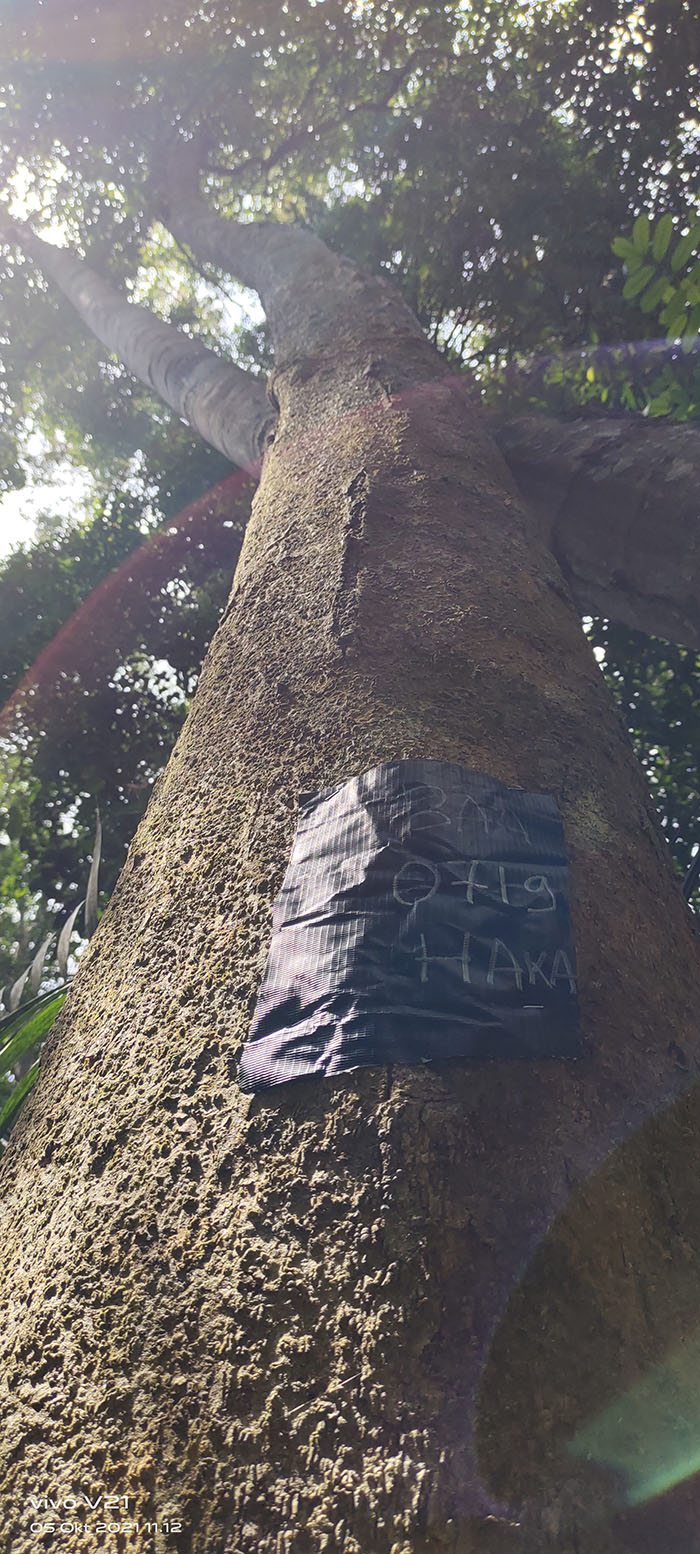 0719
HAKA
vivo V21
05 Okt 2021 11.12